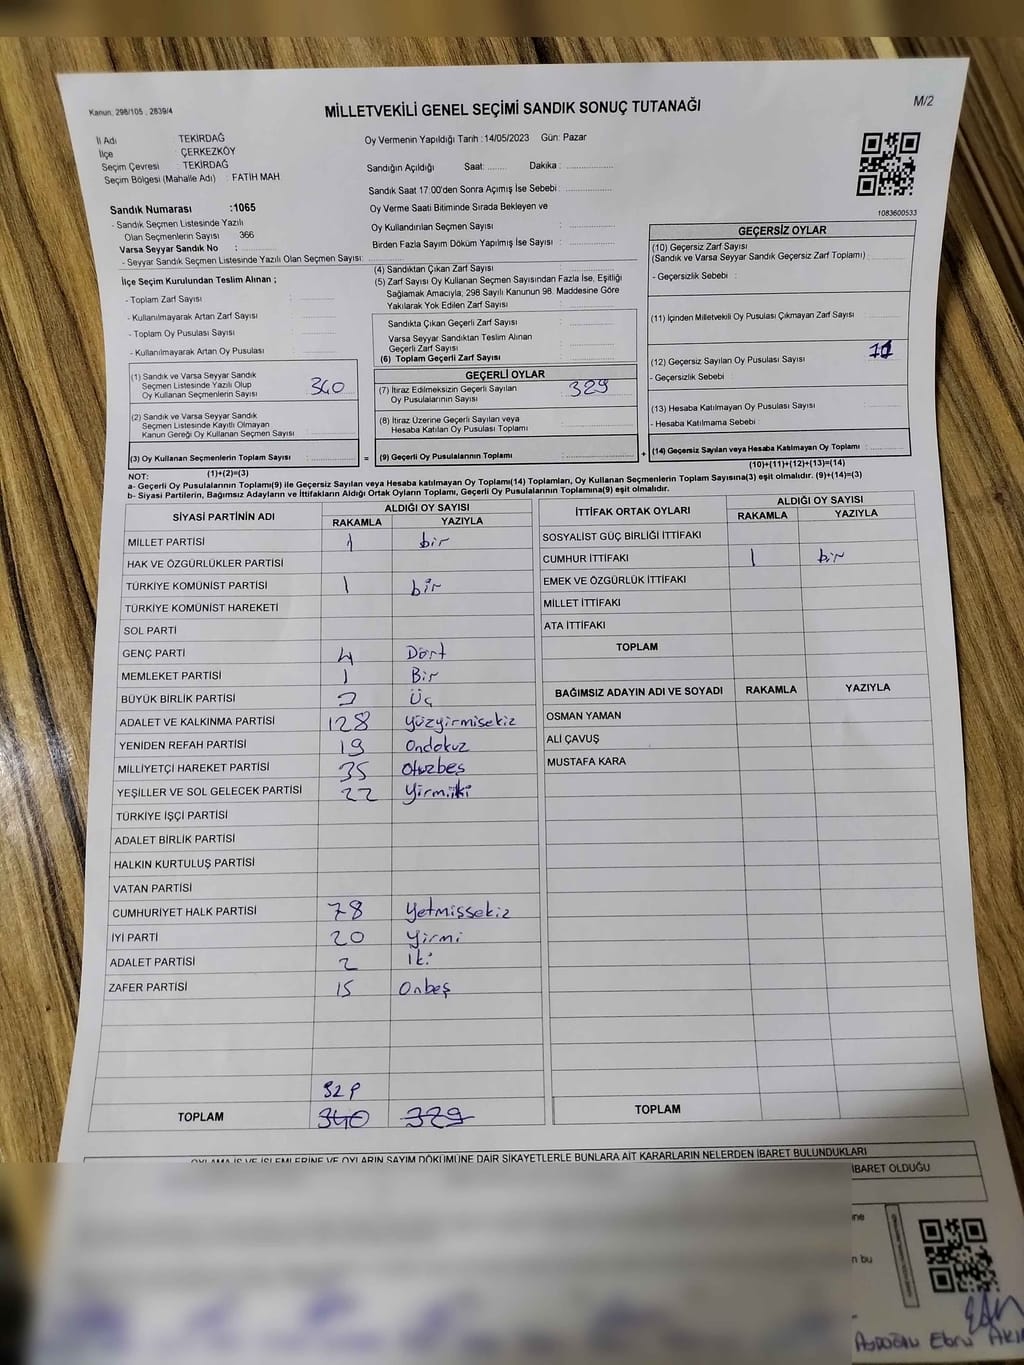 Kanun, 298/105 , 2839/4
MİLLETVEKİLİ GENEL SEÇİMİ SANDIK SONUÇ TUTANAĞI
M/2
İl Adı TEKİRDAĞ
İlçe ÇERKEZKÖY
Seçim Çevresi : TEKİRDAĞ
Seçim Bölgesi (Mahalle Adı) : FATİH MAH
Oy Vermenin Yapıldığı Tarih : 14/05/2023 Gün: Pazar
Sandığın Açıldığı Saat: ........ Dakika : ................
Sandık Saat 17:00'den Sonra Açımış İse Sebebi : ................
Oy Verme Saati Bitiminde Sırada Bekleyen ve
Oy Kullandırılan Seçmen Sayısı : ................
Birden Fazla Sayım Döküm Yapılmış İse Sayısı : ................
1083600533
Sandık Numarası :1065
- Sandık Seçmen Listesinde Yazılı
Olan Seçmenlerin Sayısı 366
Varsa Seyyar Sandık No : ............
- Seyyar Sandık Seçmen Listesinde Yazılı Olan Seçmen Sayısı: ............
İlçe Seçim Kurulundan Teslim Alınan ;
- Toplam Zarf Sayısı : ............
- Kullanılmayarak Artan Zarf Sayısı : ............
- Toplam Oy Pusulası Sayısı : ............
- Kullanılmayarak Artan Oy Pusulası : ............
(1) Sandık ve Varsa Seyyar Sandık
Seçmen Listesinde Yazılı Olup
Oy Kullanan Seçmenlerin Sayısı : 340
(2) Sandık ve Varsa Seyyar Sandık
Seçmen Listesinde Kayıtlı Olmayan
Kanun Gereği Oy Kullanan Seçmen Sayısı : ............
(3) Oy Kullanan Seçmenlerin Toplam Sayısı : ............ =
(1)+(2)=(3)
(4) Sandıktan Çıkan Zarf Sayısı : ............
(5) Zarf Sayısı Oy Kullanan Seçmen Sayısından Fazla İse, Eşitliği
Sağlamak Amacıyla, 298 Sayılı Kanunun 98. Maddesine Göre
Yakılarak Yok Edilen Zarf Sayısı : ............
Sandıkta Çıkan Geçerli Zarf Sayısı : ............
Varsa Seyyar Sandıktan Teslim Alınan
Geçerli Zarf Sayısı : ............
(6) Toplam Geçerli Zarf Sayısı : ............
GEÇERLİ OYLAR
(7) İtiraz Edilmeksizin Geçerli Sayılan
Oy Pusulalarının Sayısı : 329
(8) İtiraz Üzerine Geçerli Sayılan veya
Hesaba Katılan Oy Pusulası Toplamı : ............
(9) Geçerli Oy Pusulalarının Toplamı : ............ +
GEÇERSİZ OYLAR
(10) Geçersiz Zarf Sayısı
(Sandık ve Varsa Seyyar Sandık Geçersiz Zarf Toplamı) : ............
- Geçersizlik Sebebi :
(11) İçinden Milletvekili Oy Pusulası Çıkmayan Zarf Sayısı : ............
(12) Geçersiz Sayılan Oy Pusulası Sayısı : 11
- Geçersizlik Sebebi :
(13) Hesaba Katılmayan Oy Pusulası Sayısı : ............
- Hesaba Katılmama Sebebi :
(14) Geçersiz Sayılan veya Hesaba Katılmayan Oy Toplamı : ............
(10)+(11)+(12)+(13)=(14)
NOT:
a- Geçerli Oy Pusulalarının Toplamı(9) ile Geçersiz Sayılan veya Hesaba katılmayan Oy Toplamı(14) Toplamları, Oy Kullanan Seçmenlerin Toplam Sayısına(3) eşit olmalıdır. (9)+(14)=(3)
b- Siyasi Partilerin, Bağımsız Adayların ve İttifakların Aldığı Ortak Oyların Toplamı, Geçerli Oy Pusulalarının Toplamına(9) eşit olmalıdır.
SİYASİ PARTİNİN ADI ALDIĞI OY SAYISI
RAKAMLA YAZIYLA
MİLLET PARTİSİ 1 bir
HAK VE ÖZGÜRLÜKLER PARTİSİ
TÜRKİYE KOMÜNİST PARTİSİ 1 bir
TÜRKİYE KOMÜNİST HAREKETİ
SOL PARTİ
GENÇ PARTİ 4 Dört
MEMLEKET PARTİSİ 1 Bir
BÜYÜK BİRLİK PARTİSİ 3 Üç
ADALET VE KALKINMA PARTİSİ 128 Yüzyirmisekiz
YENİDEN REFAH PARTİSİ 19 Ondokuz
MİLLİYETÇİ HAREKET PARTİSİ 35 Otuzbeş
YEŞİLLER VE SOL GELECEK PARTİSİ 22 Yirmiiki
TÜRKİYE İŞÇİ PARTİSİ
ADALET BİRLİK PARTİSİ
HALKIN KURTULUŞ PARTİSİ
VATAN PARTİSİ
CUMHURİYET HALK PARTİSİ 78 Yetmişsekiz
İYİ PARTİ 20 Yirmi
ADALET PARTİSİ 2 İki
ZAFER PARTİSİ 15 Onbeş
TOPLAM 340 329
İTTİFAK ORTAK OYLARI ALDIĞI OY SAYISI
RAKAMLA YAZIYLA
SOSYALİST GÜÇ BİRLİĞİ İTTİFAKI
CUMHUR İTTİFAKI 1 bir
EMEK VE ÖZGÜRLÜK İTTİFAKI
MİLLET İTTİFAKI
ATA İTTİFAKI
TOPLAM
BAĞIMSIZ ADAYIN ADI VE SOYADI RAKAMLA YAZIYLA
OSMAN YAMAN
ALİ ÇAVUŞ
MUSTAFA KARA
TOPLAM
OYLAMA İŞ VE İŞLEMLERİNE VE OYLARIN SAYIM DÖKÜMÜNE DAİR ŞİKAYETLERLE BUNLARA AİT KARARLARIN NELERDEN İBARET BULUNDUKLARI
İBARET OLDUĞU